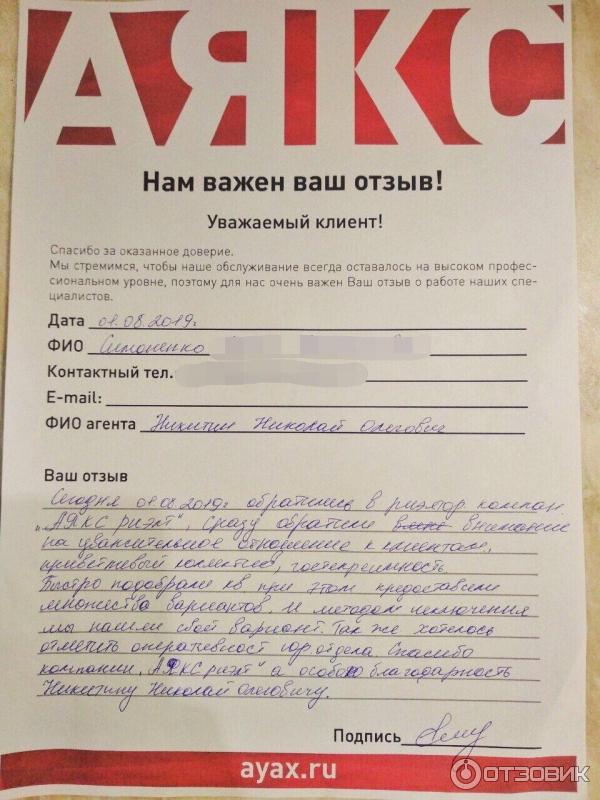 АЯКС
Нам важен ваш отзыв!
Уважаемый клиент!
Спасибо за оказанное доверие.
Мы стремимся, чтобы наше обслуживание всегда оставалось на высоком профес-
сиональном уровне, поэтому для нас очень важен Ваш отзыв о работе наших спе-
циалистов.
Дата 01.08.2019г
ФИО Симоненко
Контактный тел.
E-mail:
ФИО агента Никитин Николай Олегович
Ваш отзыв
Сегодня 01.08.2019г обратились в риэлтор компан.
"АЯКС риэлт", сразу обратили внимание
на уважительное отношение к клиентам,
приветливый коллектив, гостеприимность.
Быстро подобрали кв при этом предоставили
множества вариантов. И методом исключения
мы нашли свой вариант. Так же хотелось
отметить оперативност юр отдела. Спасибо
компании "АЯКС риэлт" а особою благодарность
Никитину Николай Олеговичу.
Подпись
ayax.ru
ОТЗОВИК